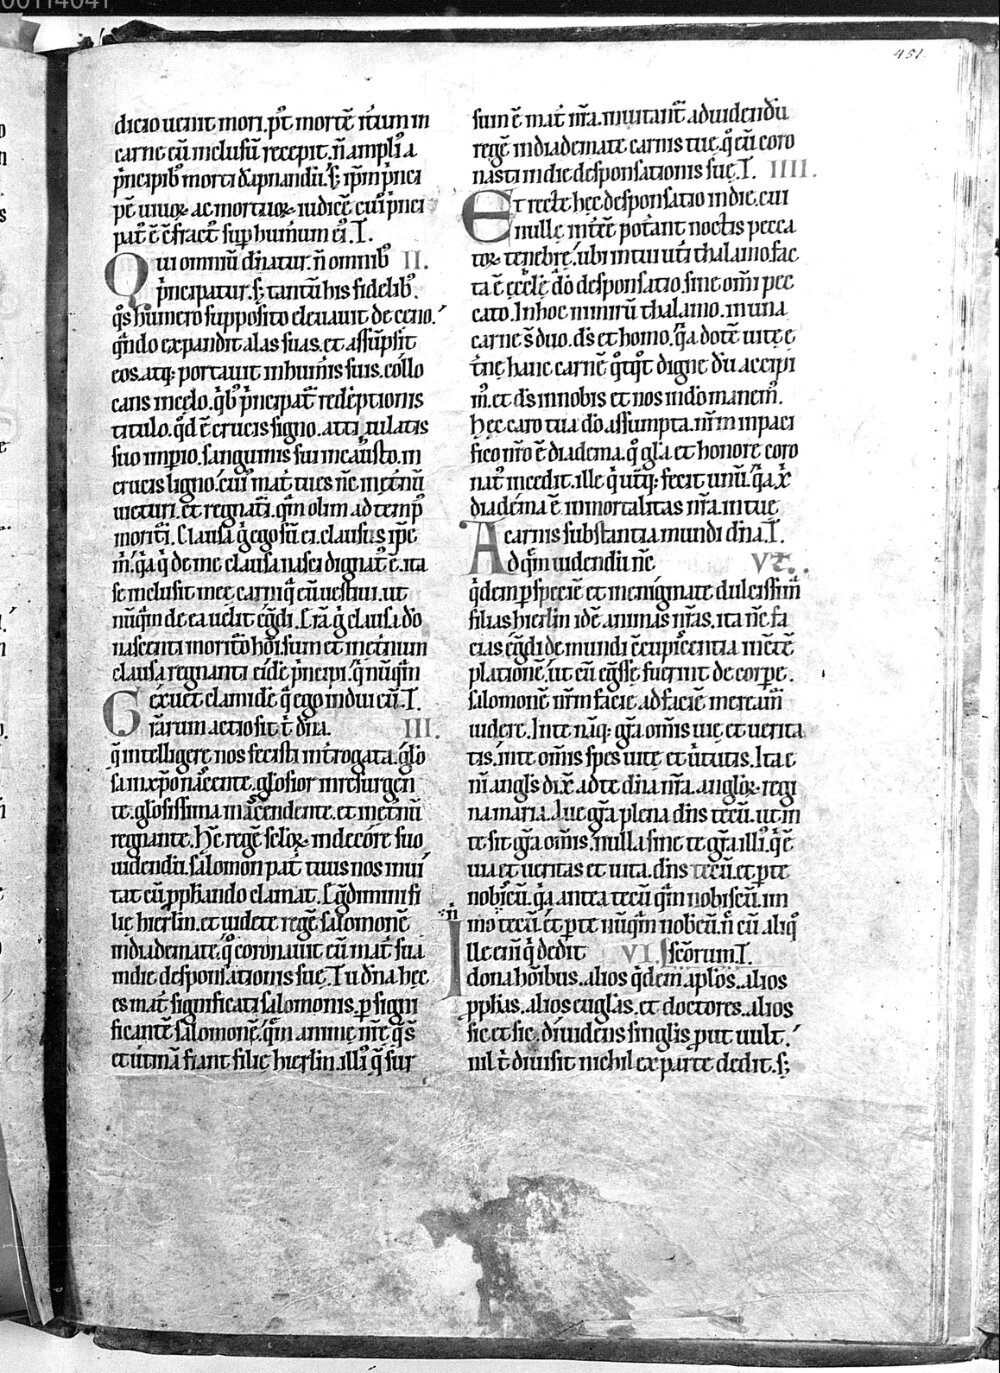 00114041
451
dicio uenit mori. p̄t mortē itum in
carne cū inclusū recepit. n̄ ampli᷒ a
p̄ncipib᷒ morti dāpnandū. s; ip̄m p̄nci
pē uiuoꝝ ac mortuoꝝ iudicē cui᷒ p̄nci
pat᷒ ē
Qui omniū dn̄atur. n̄ omnib᷒ II.
p̄ncipatur. s; tantū his fidelib᷒.
q̄s humero supposito eleuauit de ceno.
q̄ndo expandit alas suas. et assūpsit
eos. atq; portauit in hum̄is suis. collo
cans in celo. q̄b᷒ p̄ncipat᷒ redēptionis
titulo. q̄d ē crucis signo. atti tulatis
suo imp̄io. sanguinis sui incausto. in
crucis ligno.
uicturi. et regnati. q̄m olim ad temp᷒
morit̄i. Clausa ḡ ego sū ei. clausus ip̄e
m̄. q̄a q̄ de me clausa nasci dignat᷒ ē. ita
se inclusit mee carni q̄ eū uestiui. ut
nūq̄m de ea uelit eḡdi. clausa dō
nascenti
clausa regnanti eidē p̄ncipi. q̄ nūq̄m
exuet clamidē q̄ ego indui eū. T.
Grārum actio sit t̄ dn̄a. III.
q̄ intelligere nos fecisti int̄rogata. glō
sam xp̄o nascente. glōsior in resurgen
te. glōsissima in ascendente. et in et̄nū
regnante. Hc̄ regē seloꝝ in decore suo
uidendū. salomon pat᷒ tuus nos inui
tat cū pphando clamat. Eḡdimini fi
lie hierl̄m. et uidete regē salomonē
in diademate. q̄ coronauit eū mat᷒ sua
in die desponsationis suę. Tu dn̄a hec
es mat᷒ significati salomonis. p̄ signi
ficantē salomonē. q̄m anime nr̄e q̄s
et utinā fiant filie hierl̄m. illi᷒ q̄ sur
sum ē mat᷒ nr̄a. inuitant᷒ ad uidendū
regē in diademate carnis tue. q̄ eū coro
nasti in die desponsationis suę. T. IIII.
Et recte hęc desponsatio in die. cui
nulle int̄ē potant noctis pecca
toꝝ tenebrę. ubi in tui ut̄i thalamo fac
ta ē ecc̄le dō desponsatio. sine om̄i pec
cato. In hoc nimirū thalamo. in una
carne s̄ duo. ds̄ et homo. q̄a dotē uite ę
t̄ne hanc carnē q̄tq̄t digne dū accipi
m᷒. et ds̄ in nobis et nos in dō manem᷒.
Hec caro tua dō assumpta. nr̄m in paci
fico nr̄o ē diadema. q̄ gl̄a et honore coro
nat᷒ incedit. ille q̄ ut̄q; fecit unū. q̄a x̄
diadema ē inmortalitas nr̄a. in tue
carnis substantia mundi dn̄a. T.
Ad q̄m uidendū nc̄ V.
q̄dem p speciē et in enigmate dulcissim̄
filias hierl̄m idē. animas nr̄as. ita nc̄ fa
cias eḡdi de mundi cōcupiscentia in cōtē
platione. ut cū eḡsse fuerint de corp̄e.
salomonē nr̄m facie. ad faciē mereant᷒
uidere. In te naq; gr̄a om̄is uie et uerita
tis. in te om̄is spes uite et uirtutis. Ita e
ni angl̄s dix̄. ad te dn̄a nr̄a. angl̄oꝝ regi
na maria. Aue gr̄a plena dn̄s tecū. ut in
te sit gr̄a om̄is. nulla sine te gr̄a illi᷒. q̄ ē
uia et ueritas et uita. dn̄s tecū. et p te
nobiscū. q̄a antea tecū q̄m nobiscū. im
mo tecū. et p te nūq̄m nobiscū. n̄ cū aliq᷒
Ille eni q̄ dedit VI. scōrum. T.
dona hōibus. alios q̄dem aplōs. alios
pphās. alios euḡlas. et doctores. alios
sic et sic. diuidens singlis put uult.
nil t̄ diuisit nichil ex parte dedit. s;